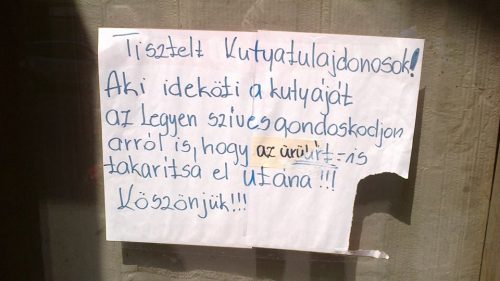 Tisztelt Kutyatulajdonosok!
Aki ideköti a kutyáját
az legyen szíves gondoskodjon
arról is, hogy az ürülékét is
takarítsa el utána !!!
Köszönjük!!!